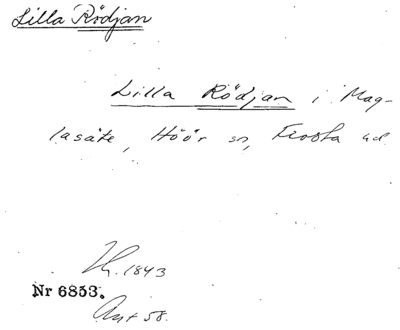 Lilla Rödjan
Lilla Rödjan i Mag-
lasäte, Höör sn, Frosta hd
Th. 1843
Nr 6853.
Ant 58.